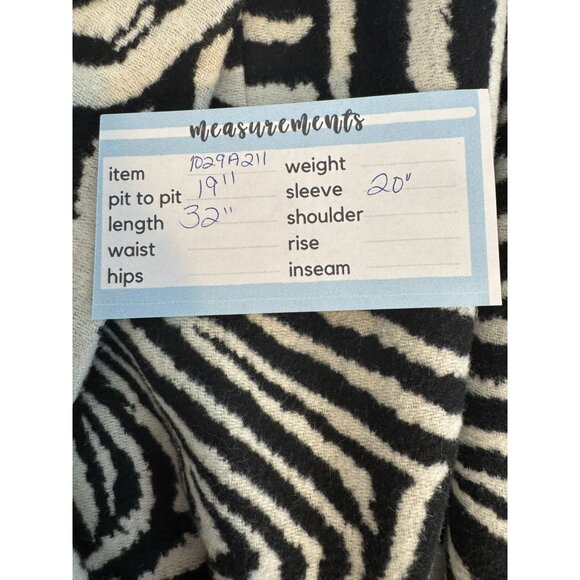 measurements
item 1029A211
pit to pit 19"
length 32"
waist
hips
weight
sleeve 20"
shoulder
rise
inseam